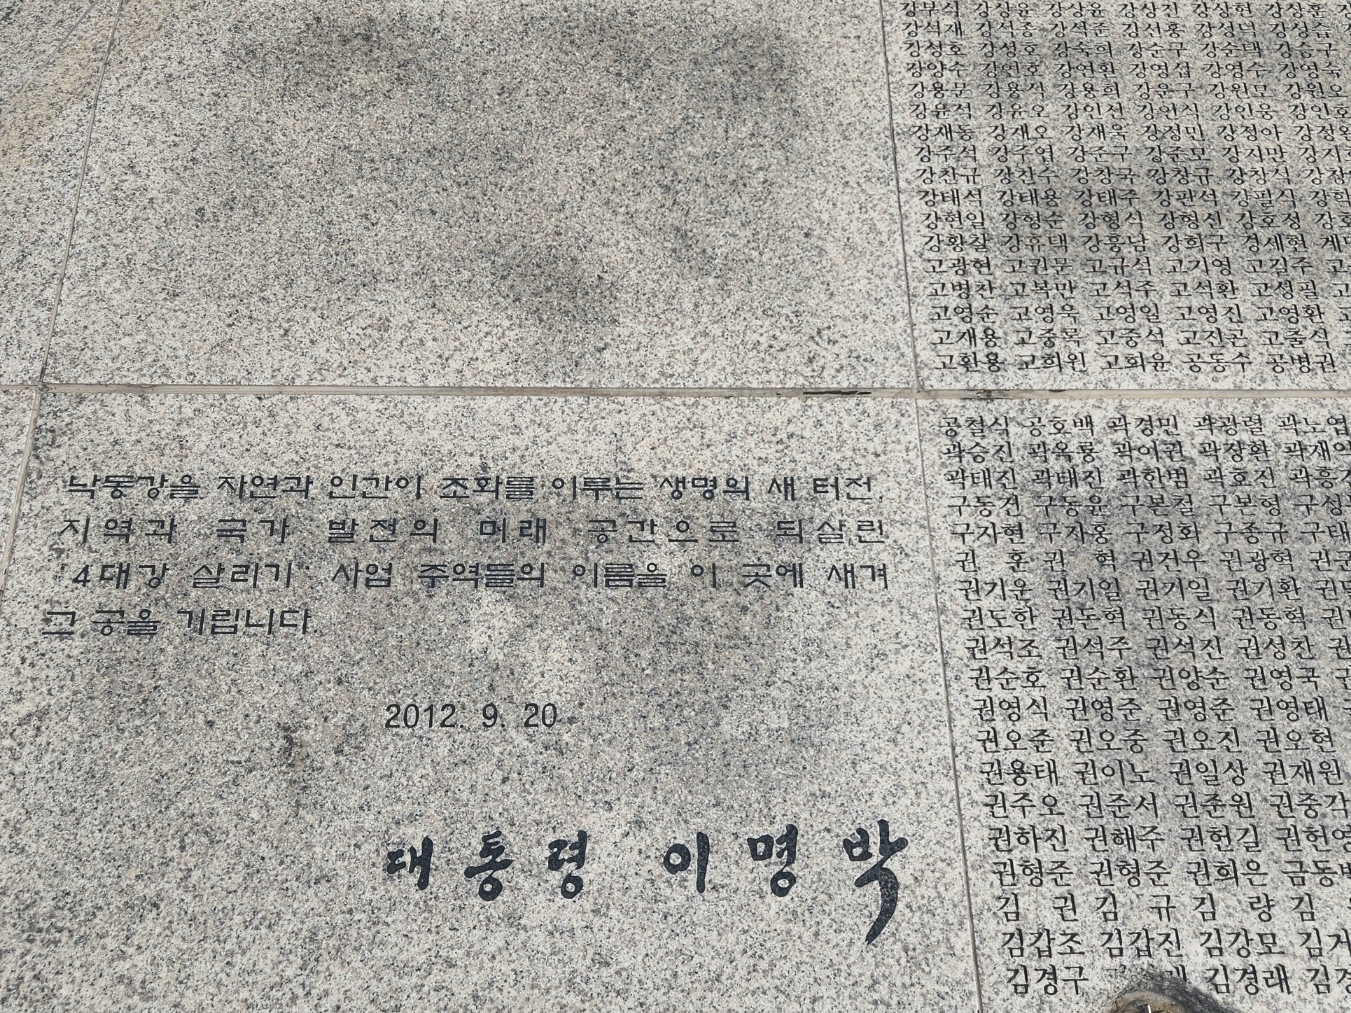 낙동강을 자연과 인간이 조화를 이루는 생명의 새 터전,
지역과 국가 발전의 미래 공간으로 되살린
'4대강 살리기' 사업 주역들의 이름을 이 곳에 새겨
그 공을 기립니다.
2012. 9. 20
대통령 이명박
강무식 강상윤 강상윤 강상진 강상현 강상훈
강석재 강석종 강석준 강선홍 강성덕
강성호 강성호 강숙희 강순구 강순택 강승구
강양수 강연호 강연환 강영섭 강영수
강용문 강용석 강용희 강운구 강원모
강윤석 강윤오 강인선 강인식 강인웅
강재동 강재오 강재욱 강정민 강정아
강주석 강주엽 강준구 강준모 강지만
강찬규 강찬수 강창국 강창규 강창식
강태석 강태용 강태주 강판석 강필식
강현일 강형순 강형식 강형신 강호성
강황찰 강휴택 강흥남 강희구 경세현
고광현 고권문 고규석 고기영 고길주
고병찬 고복만 고석주 고석환 고성필
고영순 고영욱 고영일 고영진 고영환
고재용 고중록 고중석 고진곤 고출식
고환용 고희원 고희윤 공동수 공병권
공철식 공호백 곽경민 곽광렬 곽노엽
곽승진 곽옥룡 곽이권 곽장환
곽태진 곽태진 곽한범 곽호진
구동건 구동윤 구본철 구본형
구자현 구자홍 구정화 구종규
권 훈 권 혁 권건우 권광혁
권기운 권기일 권기일 권기환
권도한 권돈혁 권동식 권동혁
권석조 권석주 권석진 권성찬
권순호 권순환 권양순 권영국
권영식 권영준 권영준 권영태
권오준 권오중 권오진 권오현
권용태 권이노 권일상 권재원
권주오 권준서 권준원 권중각
권하진 권해주 권헌길 권헌영
권형준 권형준 권희은
김 권 김 규 김 량 김
김갑조 김갑진 김강모
김경구 김경래